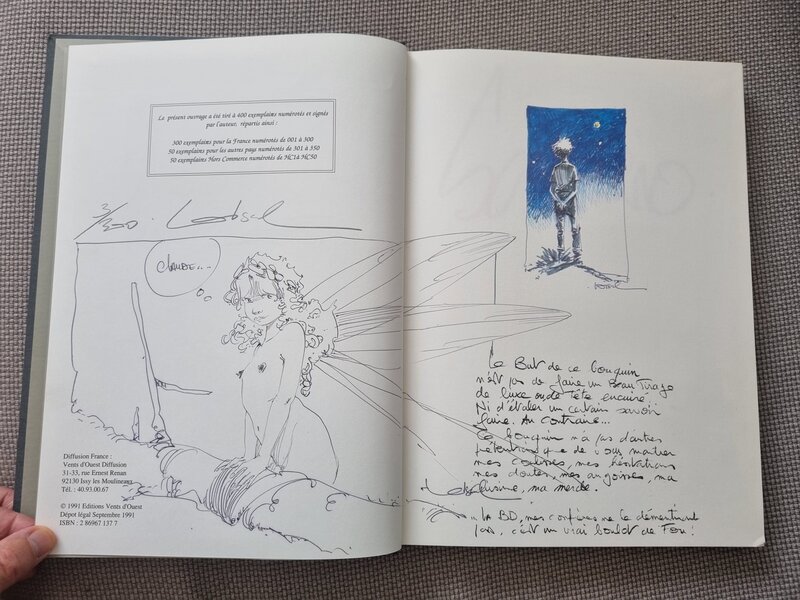 Le présent ouvrage a été tiré à 400 exemplaires numérotés et signés
par l'auteur, répartis ainsi :
300 exemplaires pour la France numérotés de 001 à 300
50 exemplaires pour les autres pays numérotés de 301 à 350
50 exemplaires Hors Commerce numérotés de HC1 à HC50
Loisel
CLAUDE...
Diffusion France :
Vents d'Ouest Diffusion
31-33, rue Ernest Renan
92130 Issy les Moulineaux
Tél. : 40.93.00.67
© 1991 Editions Vents d'Ouest
Dépot légal Septembre 1991
ISBN : 2 86967 137 7
LOISEL
Le But de ce bouquin
n'est pas de faire un Beau Tirage
de luxe ou de tête
Ni d'étaler un certain savoir
faire. Au contraire...
Ce bouquin n'a pas d'autres
prétentions que de vous montrer
mes coulisses, mes hésitations
mes doutes, mes angoisses, ma
cuisine, ma merde.
Loisel
... La BD, mes confrères ne le démentiront
pas, c'est un vrai boulot de Fou !